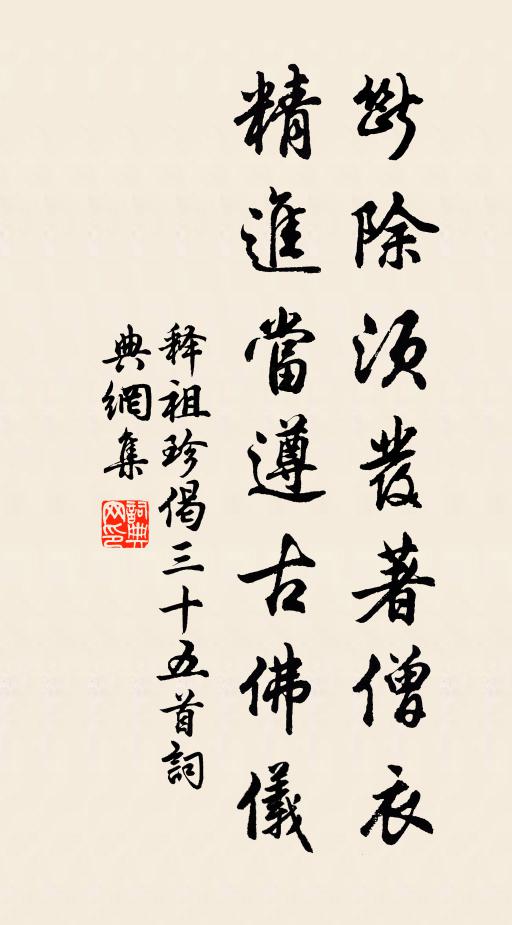 斷除須發著僧衣
精進當遵古佛儀
释祖珍偈三十五首詞
典網集
詞典网印